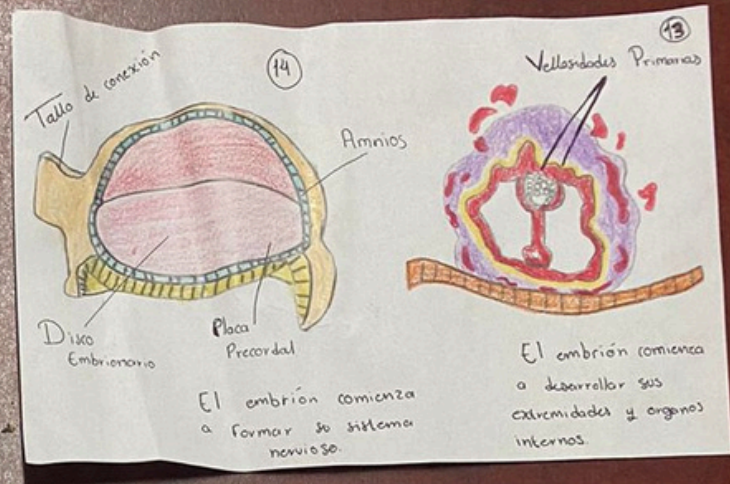 14
Tallo de conexión
Amnios
Disco
Embrionario
Placa
Precordal
El embrión comienza
a formar su sistema
nervioso.
13
Vellosidades Primarias
El embrión comienca
a desarrollar sus
extremidades y organos
internos.